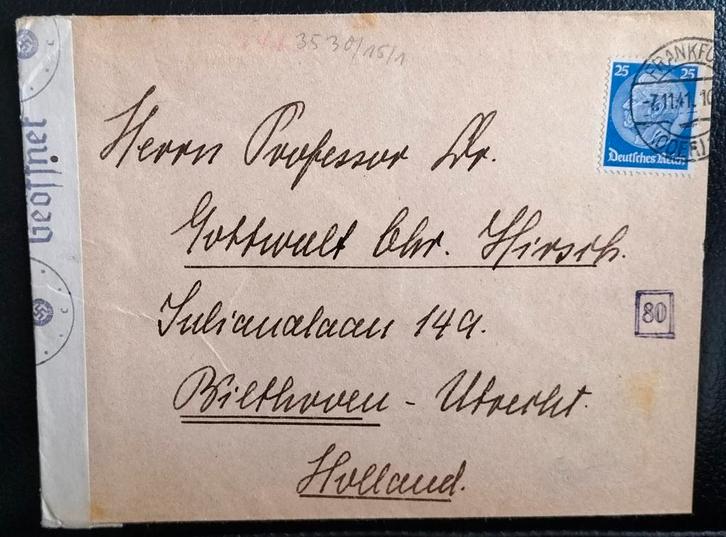 3530/15/1
25 25
Deutsches Reich
FRANKFU
-7.11.41. 10
(ODER)
Geöffnet
Herrn Professor Dr.
Gottwalt Chr. Hirsch.
Julianalaan 149.
Bilthoven - Utrecht.
Holland.
80